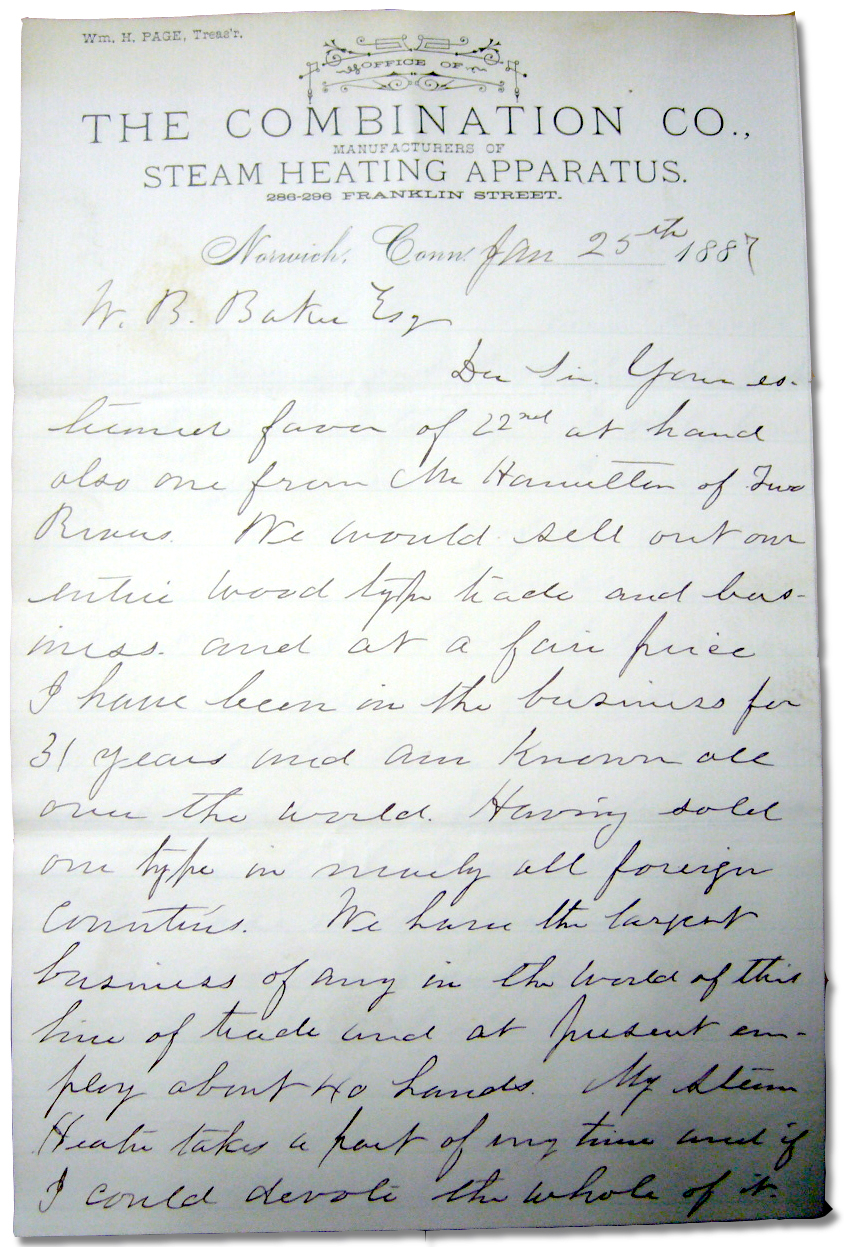 Wm. H. PAGE, Treas'r.
OFFICE OF
THE COMBINATION CO.,
MANUFACTURERS OF
STEAM HEATING APPARATUS.
286-296 FRANKLIN STREET.
Norwich, Conn. Jan 25th 1887
W. B. Baker Esq
Dear Sir. Your es-
teemed favor of 22nd at hand
also one from Mr Hamilton of Two
Rivers. We would sell out our
entire wood type trade and bus-
iness. and at a fair price
I have been in the business for
31 years and am known all
over the world. Having sold
our type in nearly all foreign
countries. We have the largest
business of any in the world of this
line of trade and at present em-
ploy about 40 hands. My Steam
Heater takes a part of my time and if
I could devote the whole of it